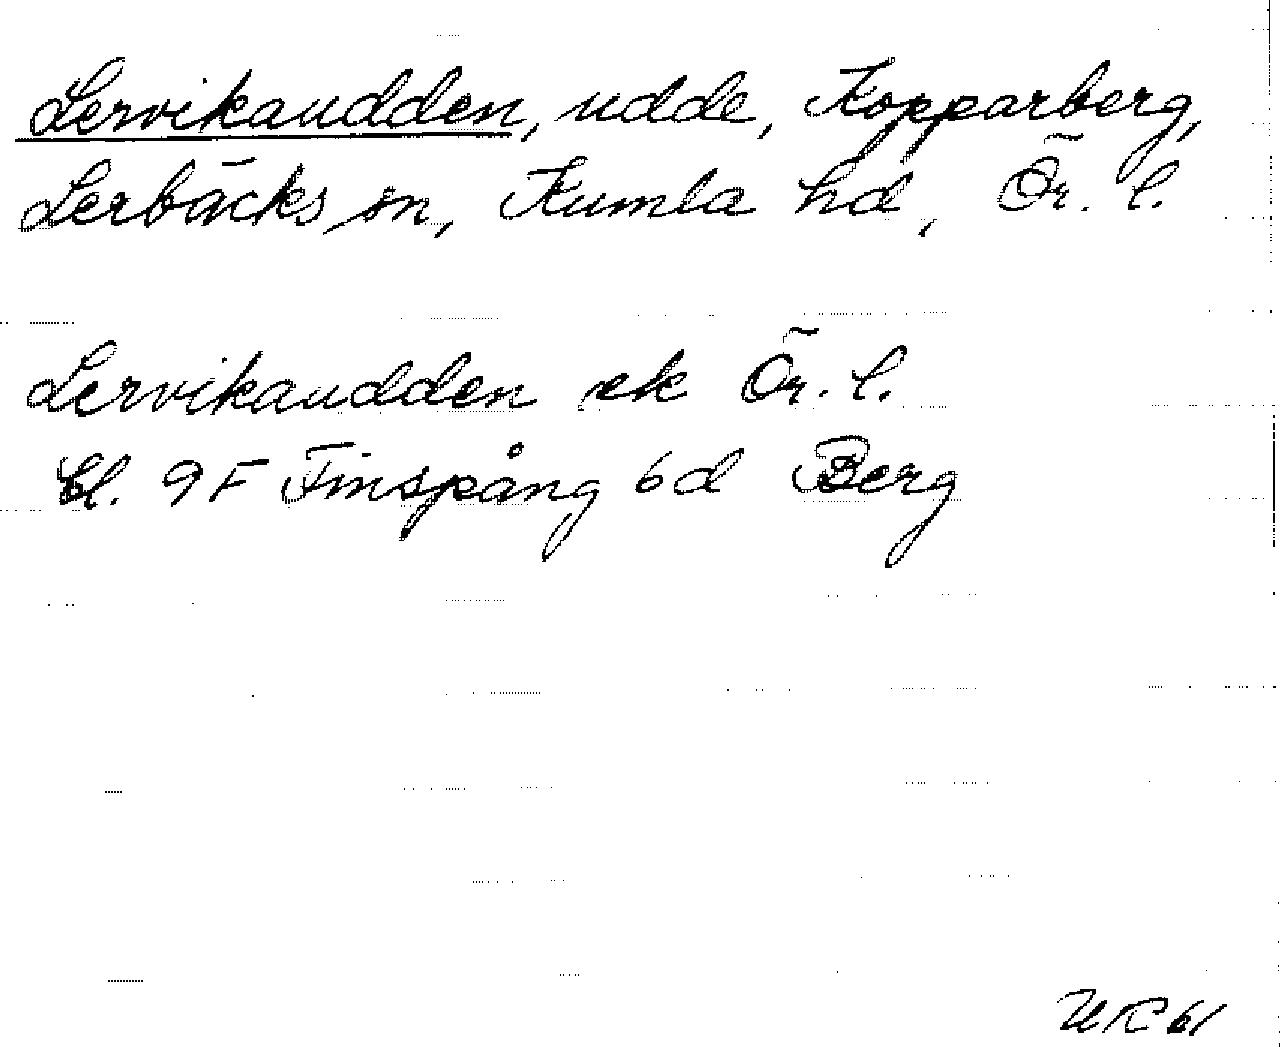 Lervikaudden, udde, Kopparberg,
Lerbäcks sn, Kumla hd, Ör. l.
Lervikaudden ek Ör. l.
bl. 9F Finspång 6d Berg